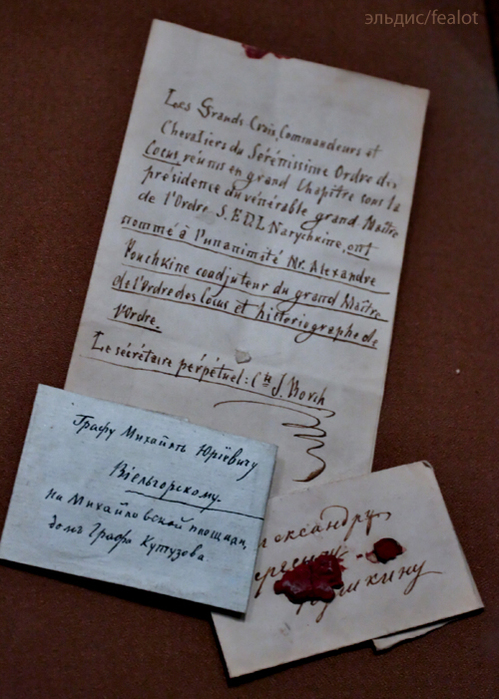 эльдис/fealot
Les Grands Croix, Commandeurs et
Chevaliers du Sérénissime Ordre des
Cocus réunis en grand Chapitre sous la
présidence du vénérable grand-Maître
de l'Ordre S.E.D.L Narychkine, ont
nommé à l'unanimité Mr. Alexandre
Pouchkine coadjuteur du grand Maître
de l'Ordre des Cocus et historiographe de
l'ordre.
Le sécrétaire perpétuel: Cte J. Borch
Графу Михайлѣ Юрiевичу
Вiельгорскому.
На Михайловской площади,
домъ Графа Кутузова
лександру
Пушкину